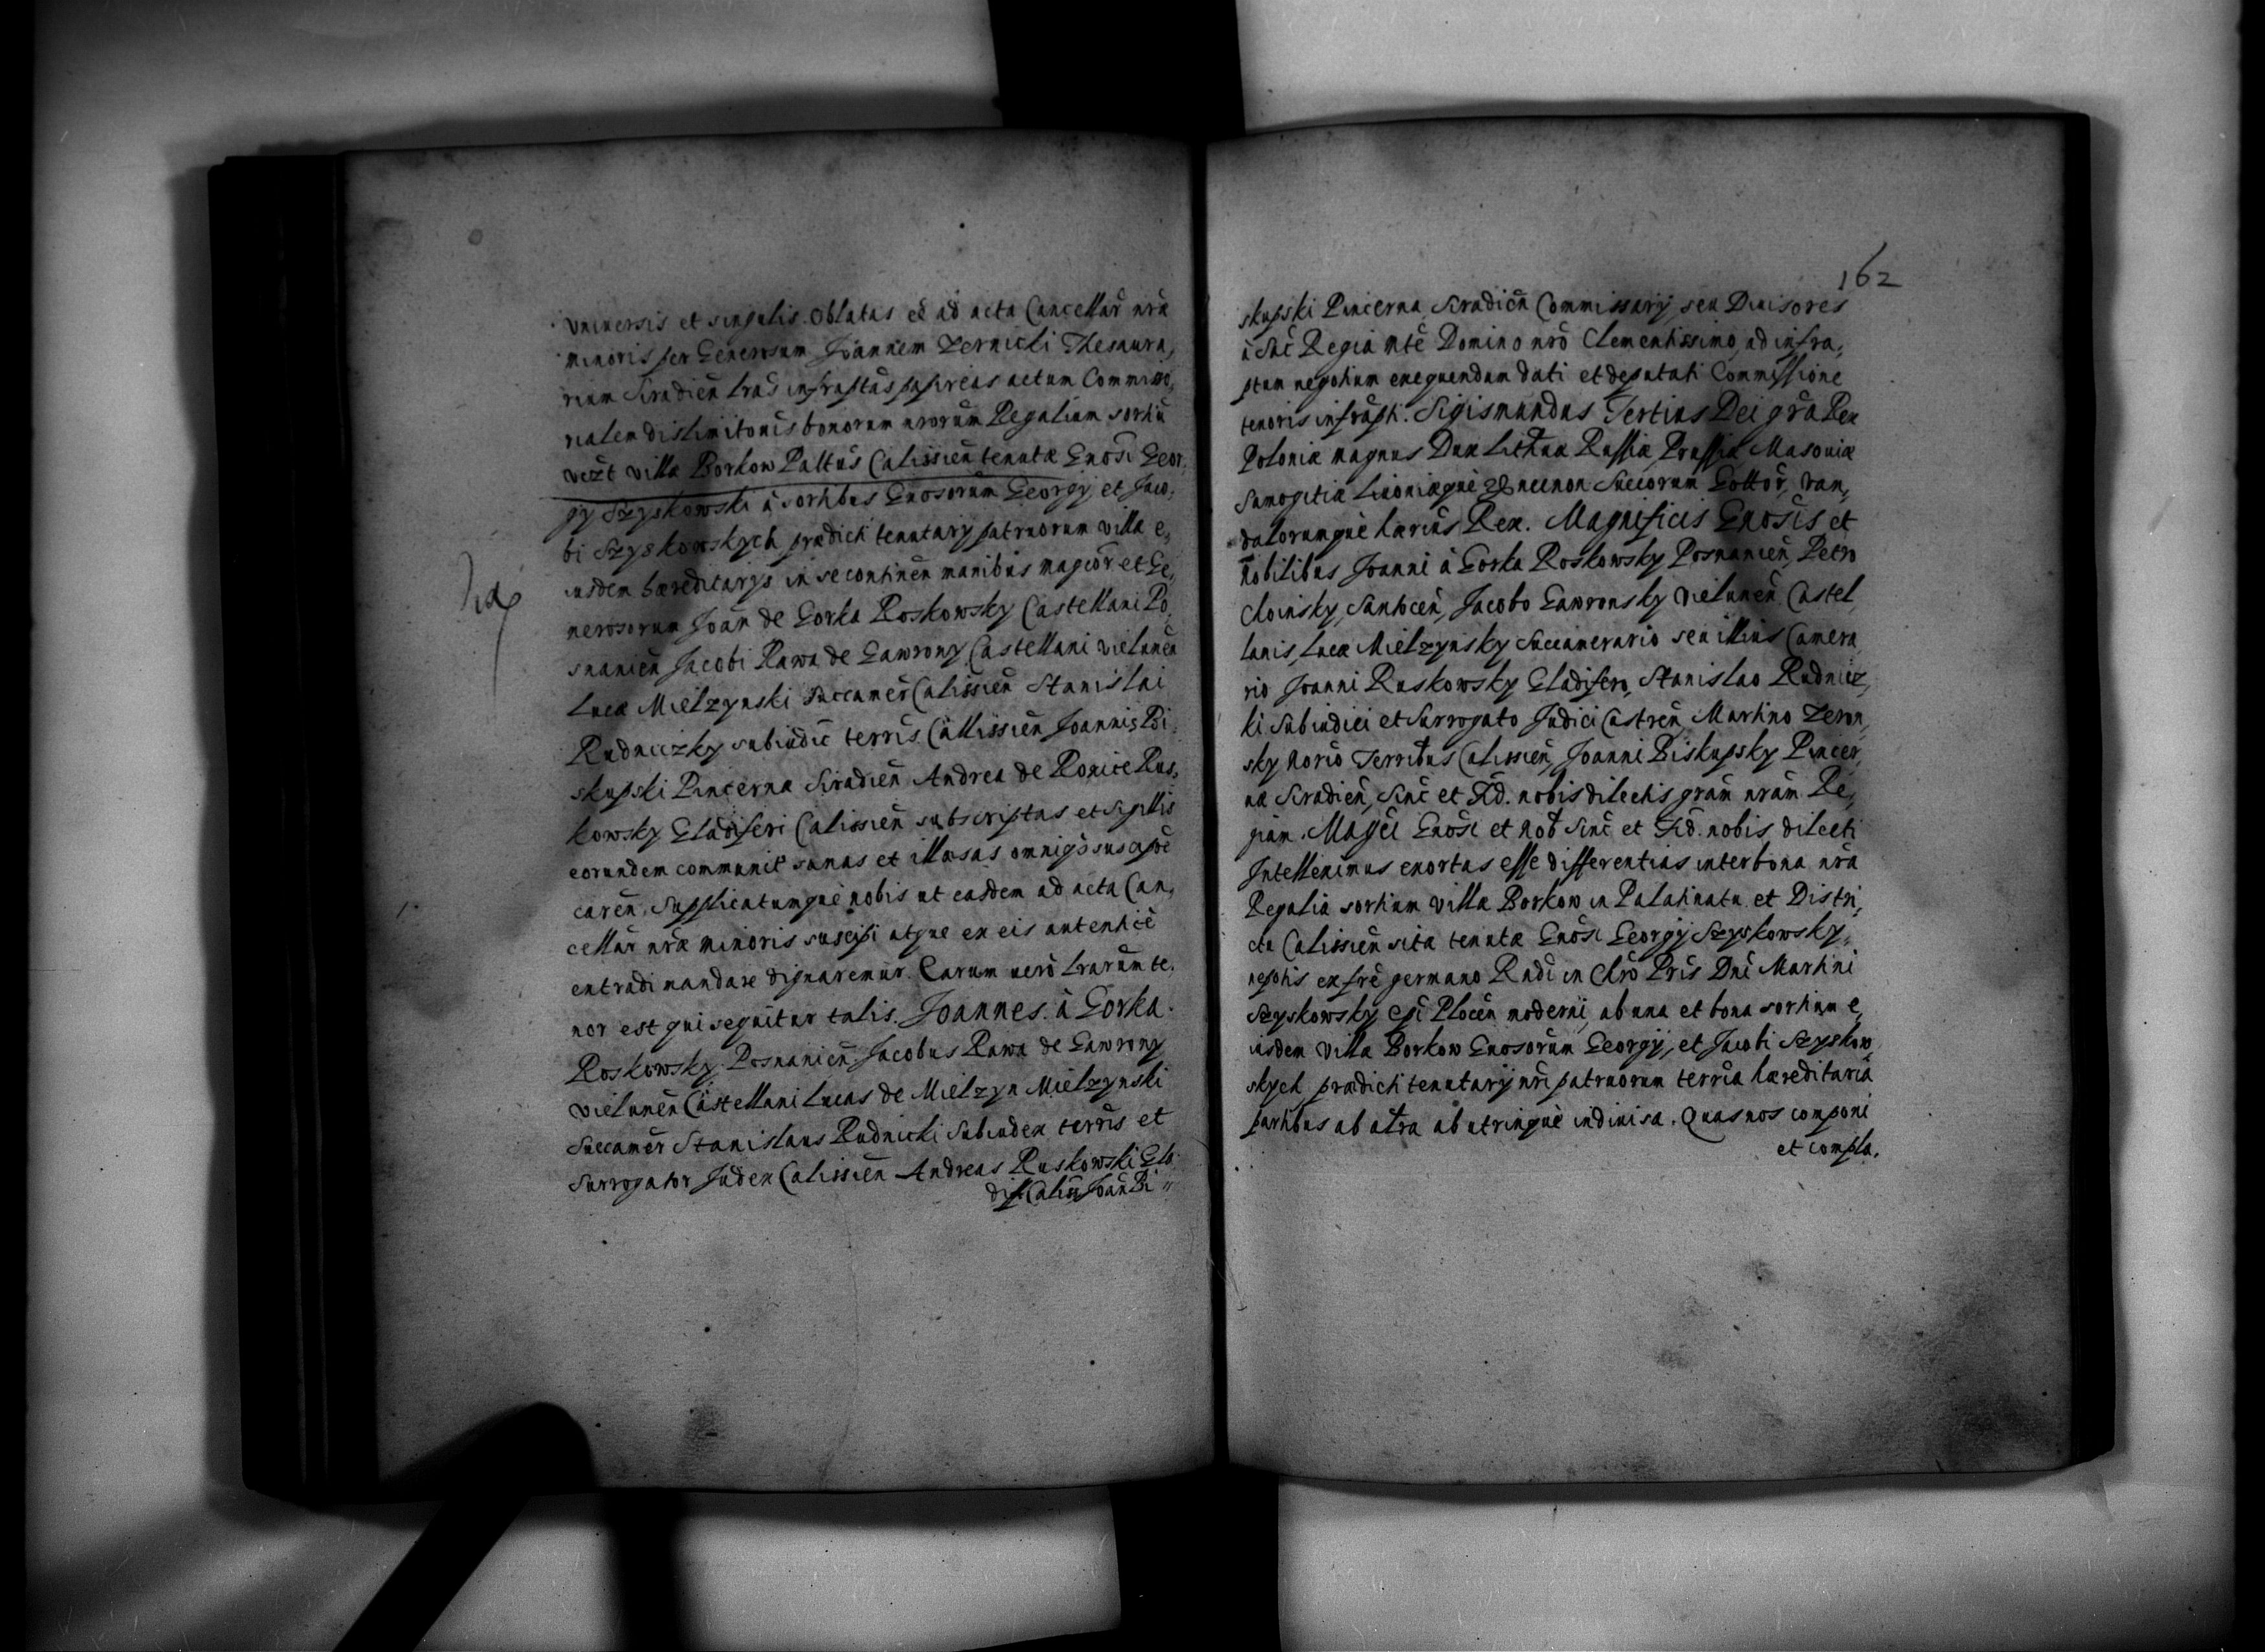 vniuersis et singulis. Oblatas eē ad acta Cancellar̄ nr̄æ
minoris per Generosum Joannem Zernicki Thesaura,
rium Siradien̄ lr̄as infrāptas papireas actum Commissio,
rialem dislimitōnis bonorum nrorum Regalium sortiū
vc̄zt villæ Borkow Pallt̄us Calissien̄ tenutæ Gnōsi Geor,
gy Szyskowski à sortibus Gnosorum Georgÿ et Jaco,
bi Szyskowskych prædicti tenutarÿ patruorum villæ e,
iusdem hæreditarys in se contineñ manibus magcor̄ et Ge,
nerosorum Joañ de Gorka Roskowsky Castellani Po,
snanien̄ Jacobi Rawa de Gawrony Castellani vielunen̄
Lucæ Mielzynski Succamer̄ Calissien̄ Stanislai
Rudniczky subiudic̄ terris̄ Callissien̄ Joannis Bi,
skupski Pincernæ Siradien̄ Andreæ de Romice Rus,
kowsky Gladiferi Calissien̄ subscriptas et sigillis
eorundem communit̄ sanas et illæsas omniq̄ś suspic̄oē
careñ. Supplicatumque nobis ut easdem ad acta Can,
cellar̄ nr̄æ minoris suscipi atque ex eis autenticè
extradi mandare dignaremur. Quarum uerò lr̄arum te,
nor est qui sequitur talis. Joannes. à Gorka.
Roskowsky. Posnanien̄. Jacobus Rawa de Gawrony
vielunen̄ Castellani Lucas de Mielzyn Mielzynski
Succamer̄ Stanislaus Rudnicki Subiudex terris̄ et
Surrogator Judex Calissien̄ Andreas Ruskowski Gla
dif. Caliss̄ Joan̄ Bi
162
skupski Pincerna Siradien̄ Commissarÿ seu Diuisores
à Sac̄ Regia Mt̄e Domino nr̄o Clementissimo, ad infra,
ptum negotium exequendum dati et deputati Commissione
tenoris infrāpti. Sigismundus Tertius Dei gr̄a Rex
Poloniæ magnus Dux Lithuæ Russiæ Prussiæ Masouiæ
Samogitiæ Liuoniæque necnon Suecorum Gottor̄, van,
dalorumque hæriūs Rex. Magnificis Gnōsis et
nobilibus Joanni à Gorka Roskowsky Posnanien̄, Petro
Choinsky, Santocen̄, Jacobo Gawronsky vielunen̄ Castel,
lanis, Lucæ Mielzynsky Succamerario seu illius Camera
rio Joanni Ruskowsky Gladifero, Stanislao Rudnicz,
ki Subiudici et Surrogato Judici Castren̄, Martino Zeron,
sky Norio Terrib̄us Calissien̄, Joanni Biskupsky Pincer,
næ Siradien̄, Sinc̄ et Fid̄. nobis dilectis gram̄ nram̄ Re,
giam. Magc̄i Gnōsi et Nob̄ Sinc̄ et Fid̄. nobis dilecti
Intelleximus exortas esse differentias inter bona nr̄a
Regalia sortium villæ Borkow in Palatinatu et Distri,
ctu Calissien̄ sita tenutæ Gnōsi Georgÿ Szyskowsky,
nepotis ex fr̄e germano Rudi in Chr̄o Pris̄ Dnī Martini
Szyskowsky Ep̄i Plocen̄ moderni, ab una et bona sortium e,
iusdem villæ Borkow Gnosorum Georgÿ, et Jacobi Szyskow,
skych prædicti tenutarÿ nrī patruorum terria hæreditaria
partibus ab alt̄ra ab utrinque indiuisa. Quas nos componi
et compla.